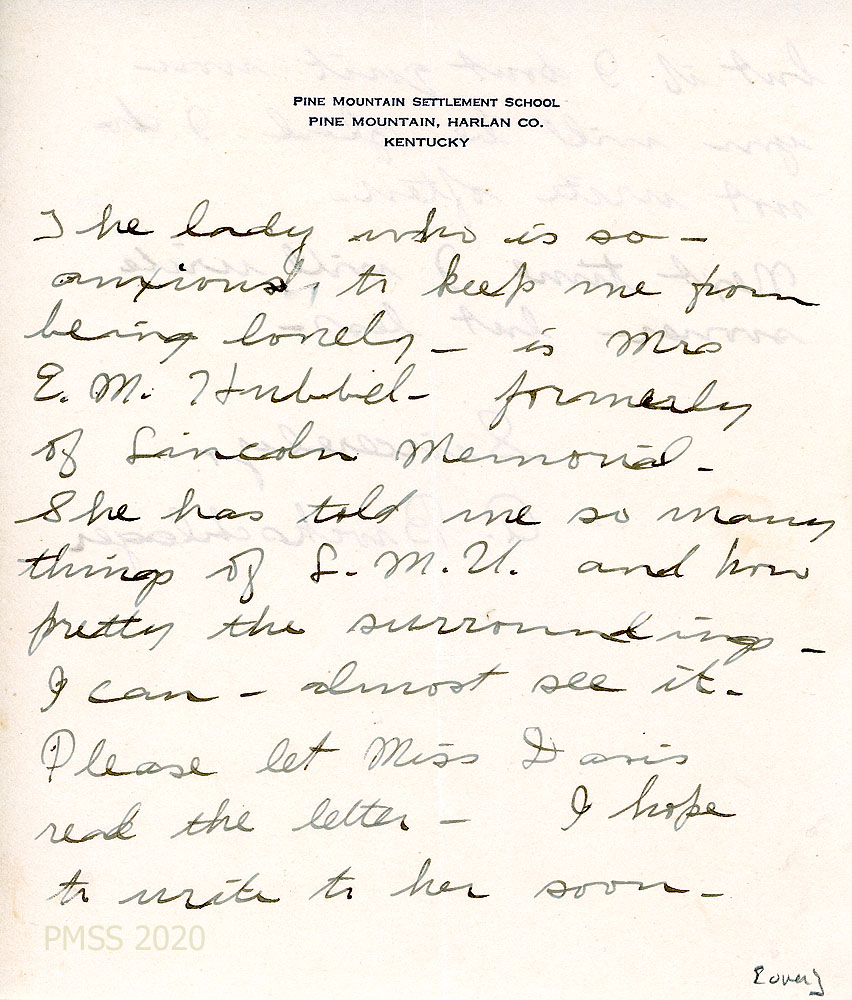 PINE MOUNTAIN SETTLEMENT SCHOOL
PINE MOUNTAIN, HARLAN CO.
KENTUCKY
The lady who is so –
anxious, to keep me from
being lonely – is Mrs
E. M. Hubbel – formerly
of Lincoln Memorial –
She has told me so many
things of L. M. U. and how
pretty the surroundings –
I can – almost see it –
Please let Miss Davis
read the letter – I hope
to write to her soon –
PMSS 2020
[over]